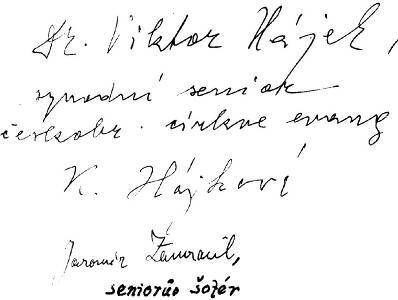 Dr. Viktor Hájek,
synodní senior
českobr. církve evang
K. Hájková
Jaromír Zámrazil,
seniorův šofér